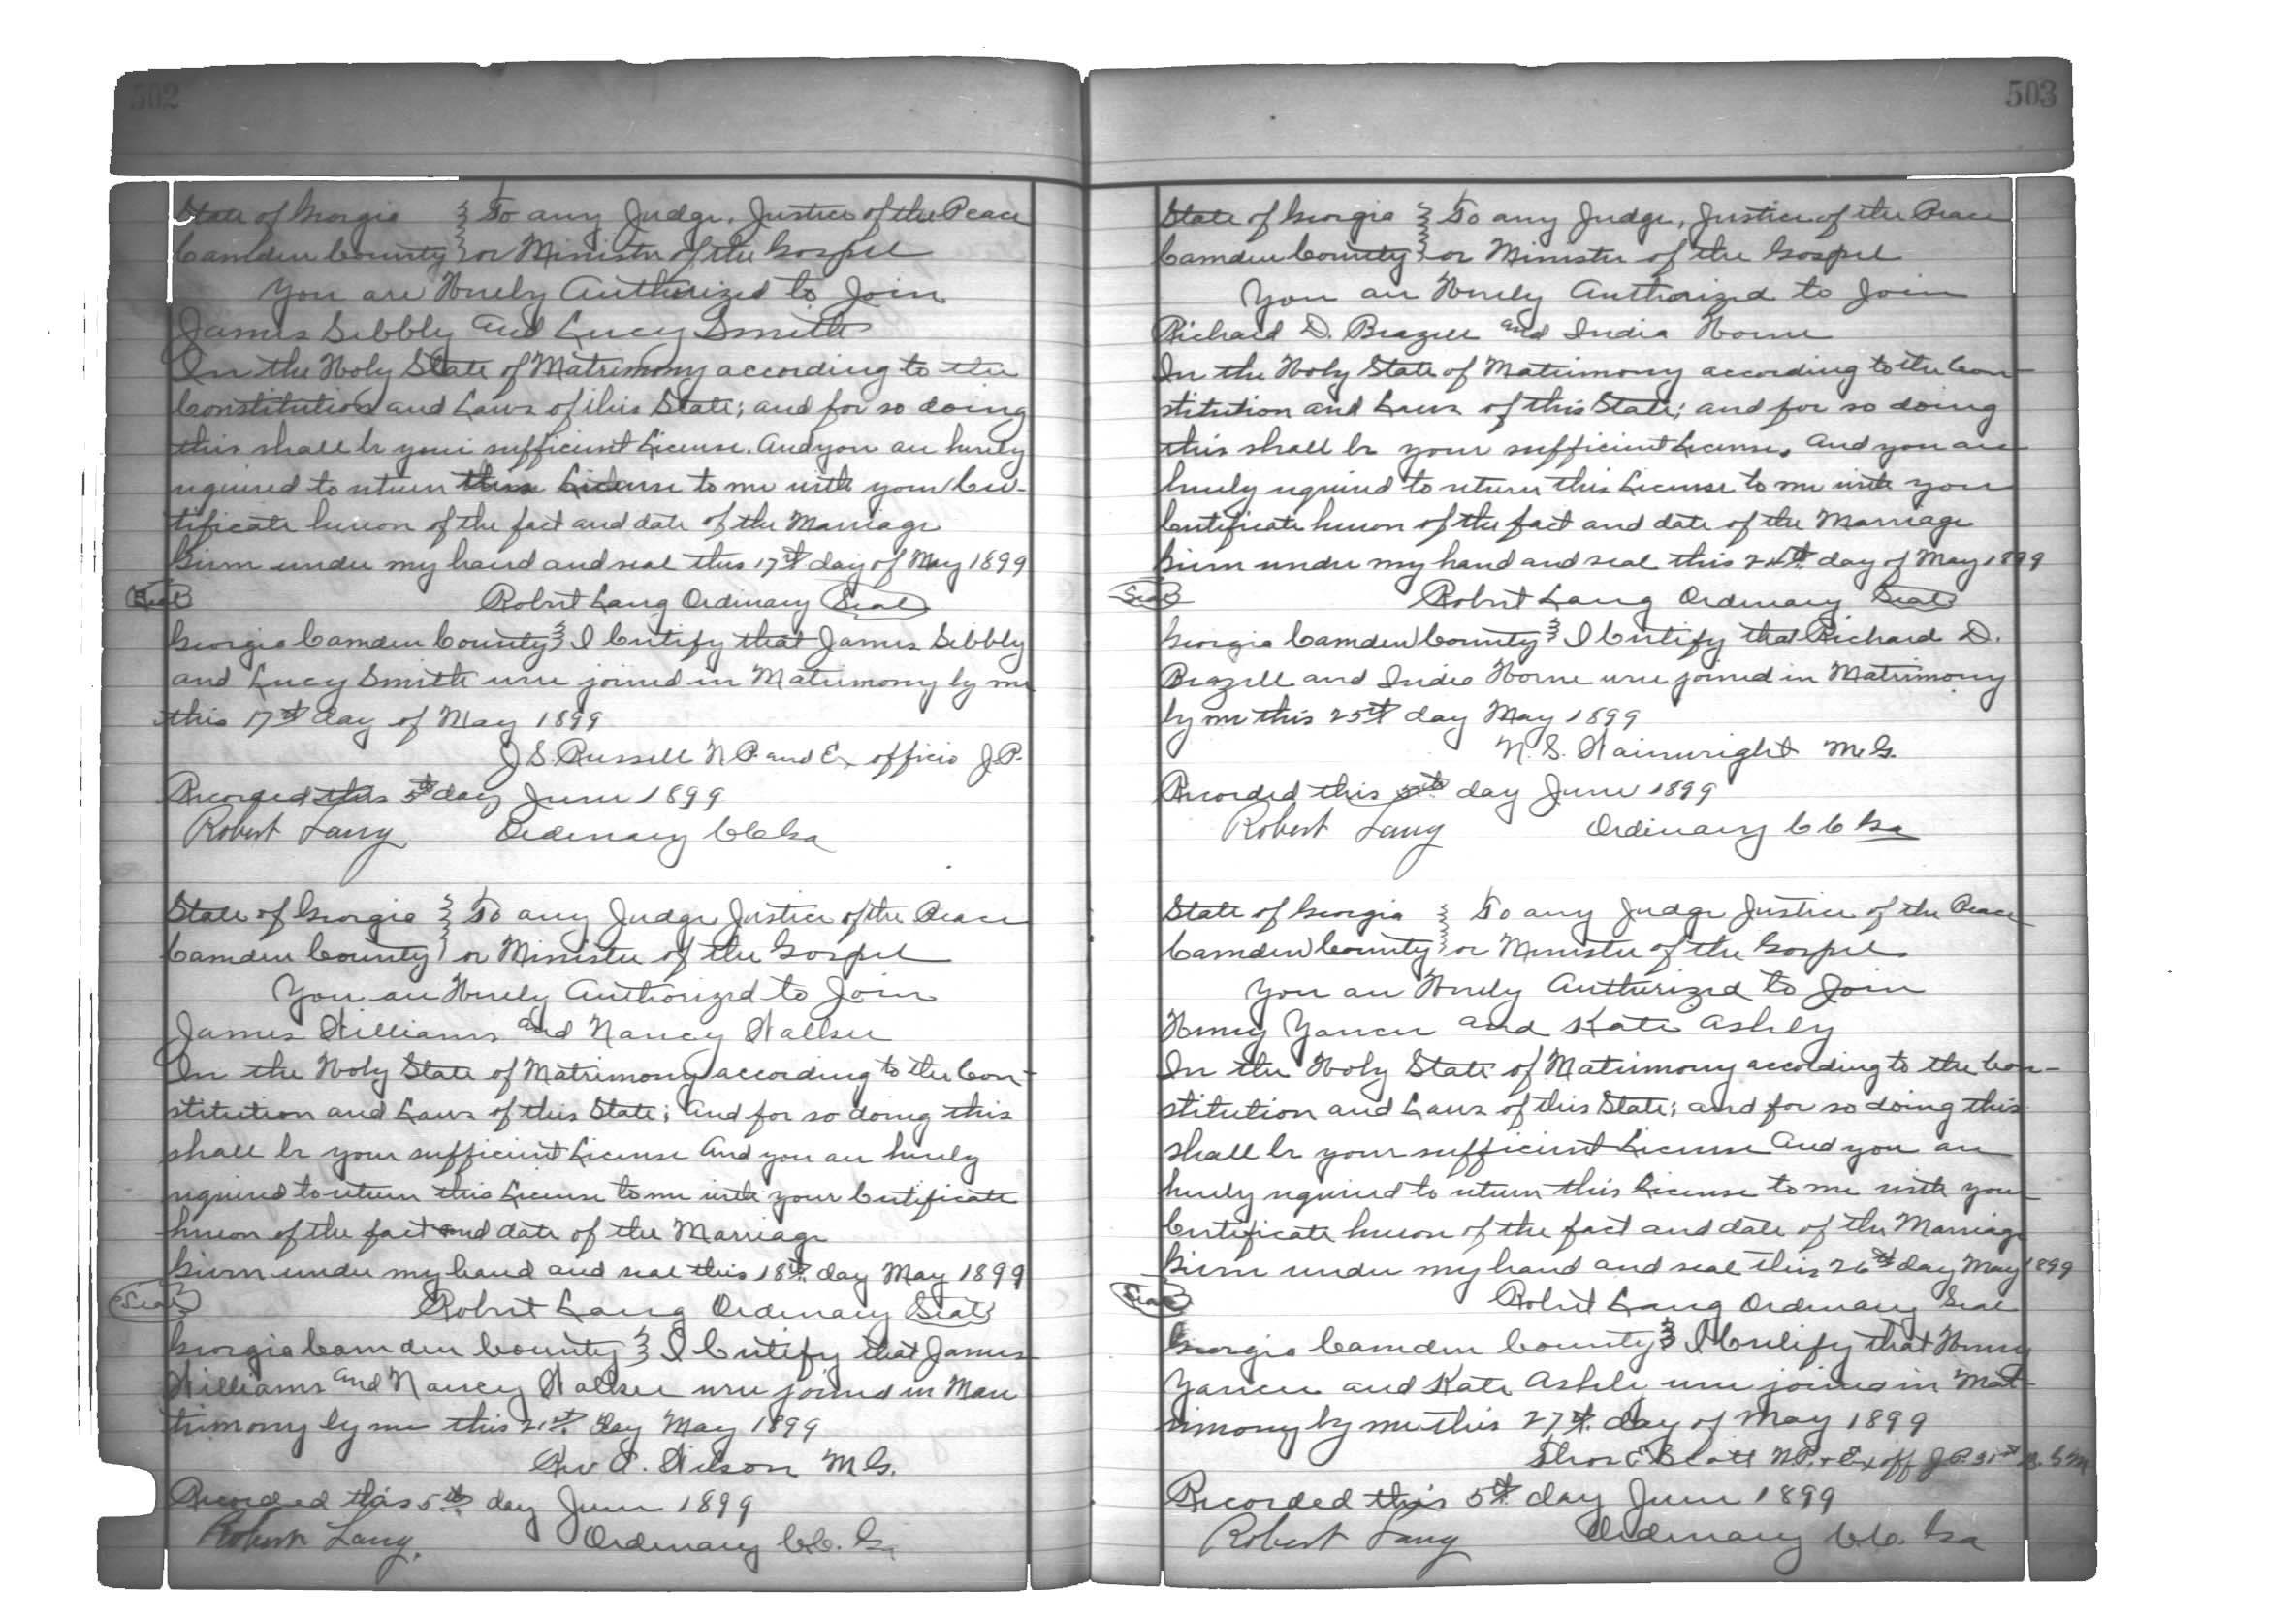 502
State of Georgia } To any Judge, Justice of the Peace
Camden County } or Minister of the Gospel
You are Hereby Authorized to Join
James Sibbly and Lucy Smith
In the Holy State of Matrimony according to the
Constitution and Laws of this State; and for so doing
this shall be your sufficient License. And you are hereby
required to return this License to me with your Cer-
tificate hereon of the fact and date of the Marriage
Given under my hand and seal this 17th day of May 1899
Seal Robert Lang Ordinary Seal
Georgia Camden County } I Certify that James Sibbly
and Lucy Smith were joined in Matrimony by me
this 17th day of May 1899
J. S. Russell N.P. and Ex officio J.P.
Recorded this 5th day June 1899
Robert Lang Ordinary CC Ga
State of Georgia } To any Judge Justice of the Peace
Camden County } or Minister of the Gospel
You are Hereby Authorized to Join
James Williams and Nancy Walker
In the Holy State of Matrimony according to the Con-
stitution and Laws of this State; and for so doing this
shall be your sufficient License And you are hereby
required to return this License to me with your Certificate
hereon of the fact and date of the Marriage
Given under my hand and seal this 18th day May 1899
Seal Robert Lang Ordinary Seal
Georgia Camden County } I Certify that James
Williams and Nancy Walker were joined in Ma
trimony by me this 21st day May 1899
Rev. Wilson M.G.
Recorded this 5th day June 1899
Robert Lang. Ordinary C.C. Ga
503
State of Georgia } To any Judge, Justice of the Peace
Camden County } or Minister of the Gospel
You are Hereby Authorized to Join
Richard D. Brazell and India Horne
In the Holy State of Matrimony according to the Con-
stitution and Laws of this State; and for so doing
this shall be your sufficient License, And you are
hereby required to return this License to me with your
Certificate hereon of the fact and date of the Marriage
Given under my hand and seal this 24th day of May 1899
Seal Robert Lang Ordinary Seal
Georgia Camden County } I Certify that Richard D.
Brazell and India Horne were joined in Matrimony
by me this 25th day May 1899
N. S. Wainwright M.G.
Recorded this 5th day June 1899
Robert Lang Ordinary C C Ga
State of Georgia } To any Judge Justice of the Peace
Camden County } or Minister of the Gospel
You are Hereby Authorized to Join
Henry Yancey and Kate Ashley
In the Holy State of Matrimony according to the Con-
stitution and Laws of this State; and for so doing this
shall be your sufficient License And you are
hereby required to return this License to me with your
Certificate hereon of the fact and date of the Marriage
Given under my hand and seal this 26th day May 1899
Seal Robert Lang Ordinary Seal
Georgia Camden County } I Certify that Henry
Yancey and Kate Ashle were joined in Mat-
rimony by me this 27th day of May 1899
Thos E Scott N.P. + Ex off J.P. 31st G.M
Recorded this 5th day June 1899
Robert Lang Ordinary C.C. Ga